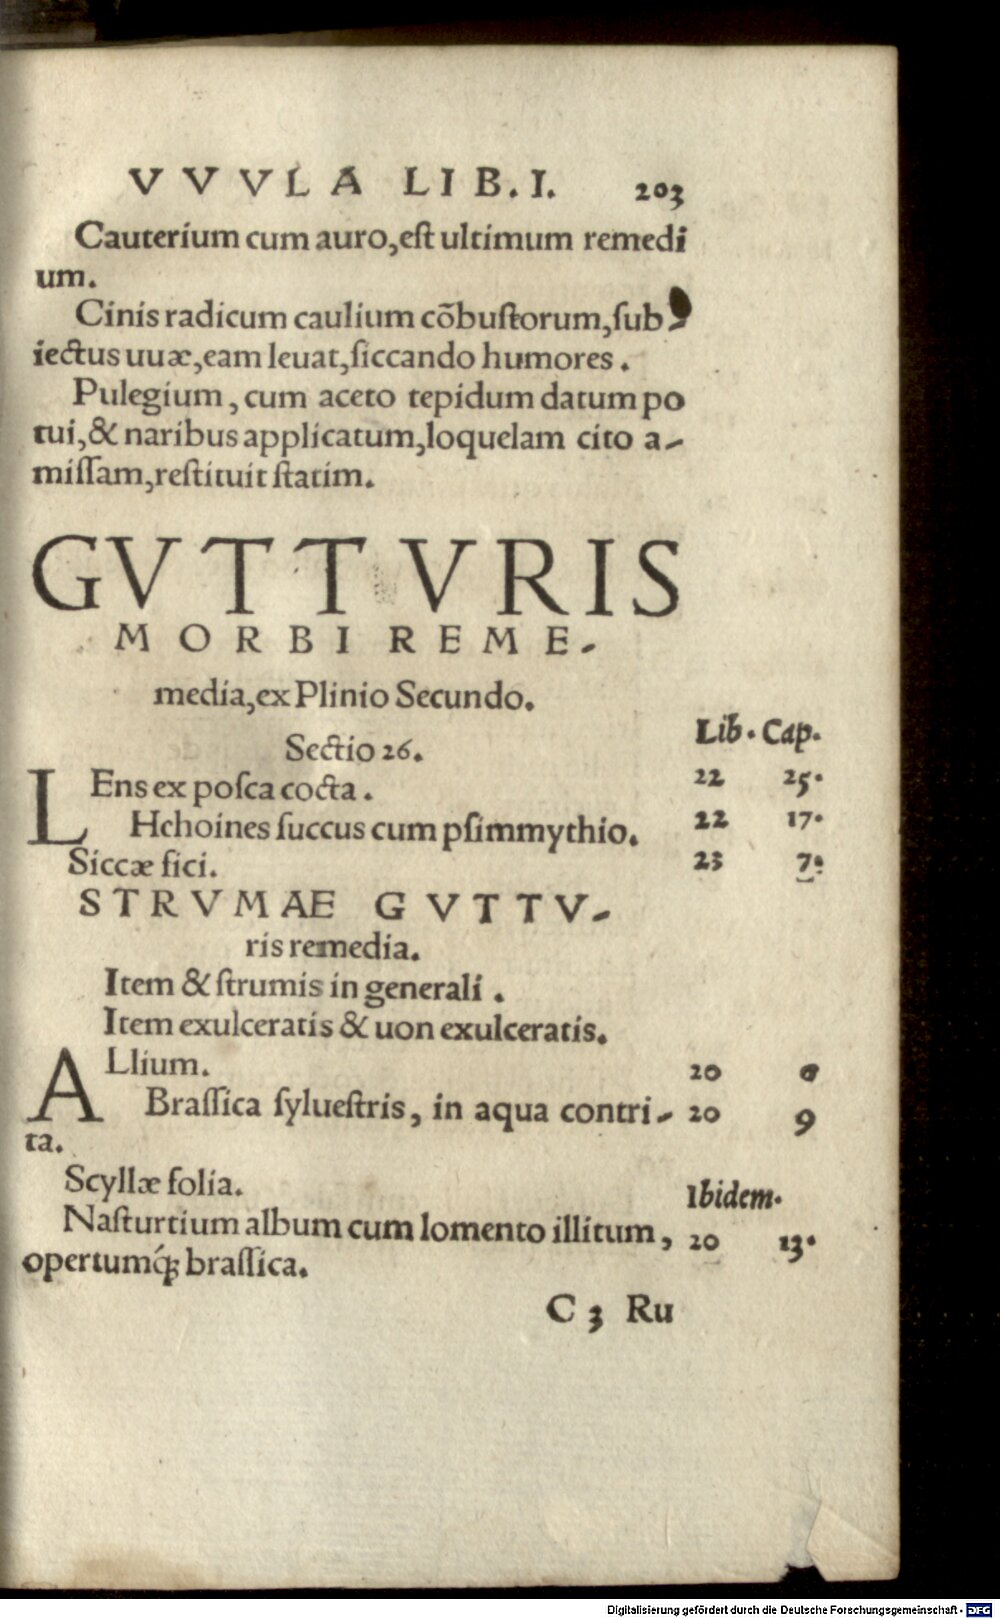 VVVLA LIB. I. 203
Cauterium cum auro, eſt ultimum remedi
um.
Cinis radicum caulium cõbuſtorum, ſub-
iectus uuæ, eam leuat, ſiccando humores.
Pulegium, cum aceto tepidum datum po
tui, & naribus applicatum, loquelam cito a-
miſſam, reſtituit ſtatim.
GVTTVRIS
MORBI REME-
media, ex Plinio Secundo.
Sectio 26. Lib. Cap.
LEns ex poſca cocta. 22 25.
Hchoines ſuccus cum pſimmythio. 22 17.
Siccæ fici. 23 7.
STRVMAE GVTTV-
ris remedia.
Item & ſtrumis in generali.
Item exulceratis & uon exulceratis.
ALlium. 20
Braſſica ſylueſtris, in aqua contri- 20 9
ta.
Scyllæ folia. Ibidem.
Naſturtium album cum lomento illitum, 20 13.
opertumq́; braſſica.
C 3 Ru
Digitalisierung gefördert durch die Deutsche Forschungsgemeinschaft - DFG